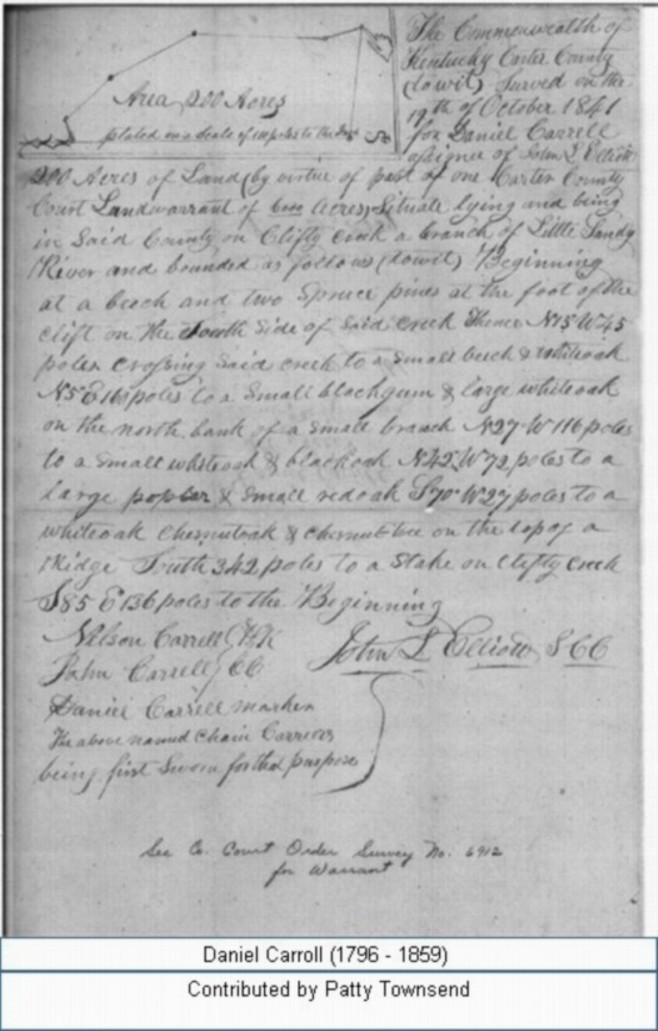 Area 200 Acres
plated on a scale of 100 poles to the Inch
The Commonwealth of
Kentucky Carter County
(towit) Surved on the
19th of October 1841
for Daniel Carrell
asignee of John L Elliott
200 Acres of Land (by virtue of part of one Carter County
Court Landwarrant of Acres) Situate lying and being
in Said County on Clifty creek a branch of Little Sandy
River and bounded as follows (towit) Beginning
at a beech and two Spruce pines at the foot of the
clift on the South Side of Said creek Thence N15 W 45
poles crossing Said creek to a Small beech & whiteoak
N5 E 110 poles to a Small blackgum & large whiteoak
on the north bank of a small branch N27 W 116 poles
to a Small whiteoak & blackoak N42 W 72 poles to a
large poplar & Small redoak S70 W 27 poles to a
whiteoak Chesnutoak & Chesnut tree on the top of a
Ridge South 342 poles to a Stake on Clifty creek
S85 E 136 poles to the Beginning
Nelson Carrell
John Carrell CC
John L Elliott SCC
Daniel Carrell marker
The above named Chain Carriers
being first Sworn for that purpose
See Co. Court Order Survey No. 6912
for Warrant
Daniel Carroll (1796 - 1859)
Contributed by Patty Townsend